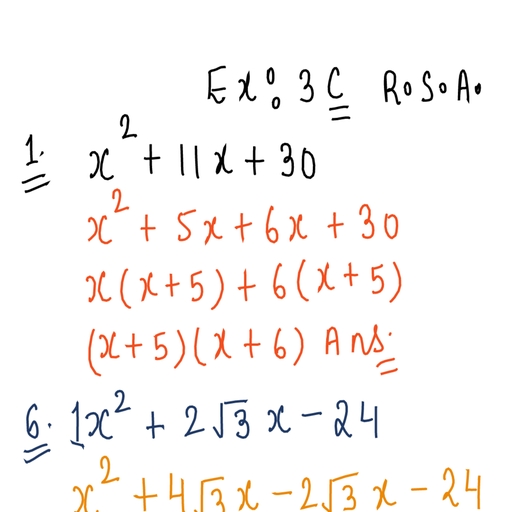 Ex: 3C R.S.A.
1. x² + 11x + 30
x² + 5x + 6x + 30
x(x+5) + 6(x+5)
(x+5)(x+6) Ans.
6. 1x² + 2√3 x - 24
x² + 4√3x - 2√3 x - 24